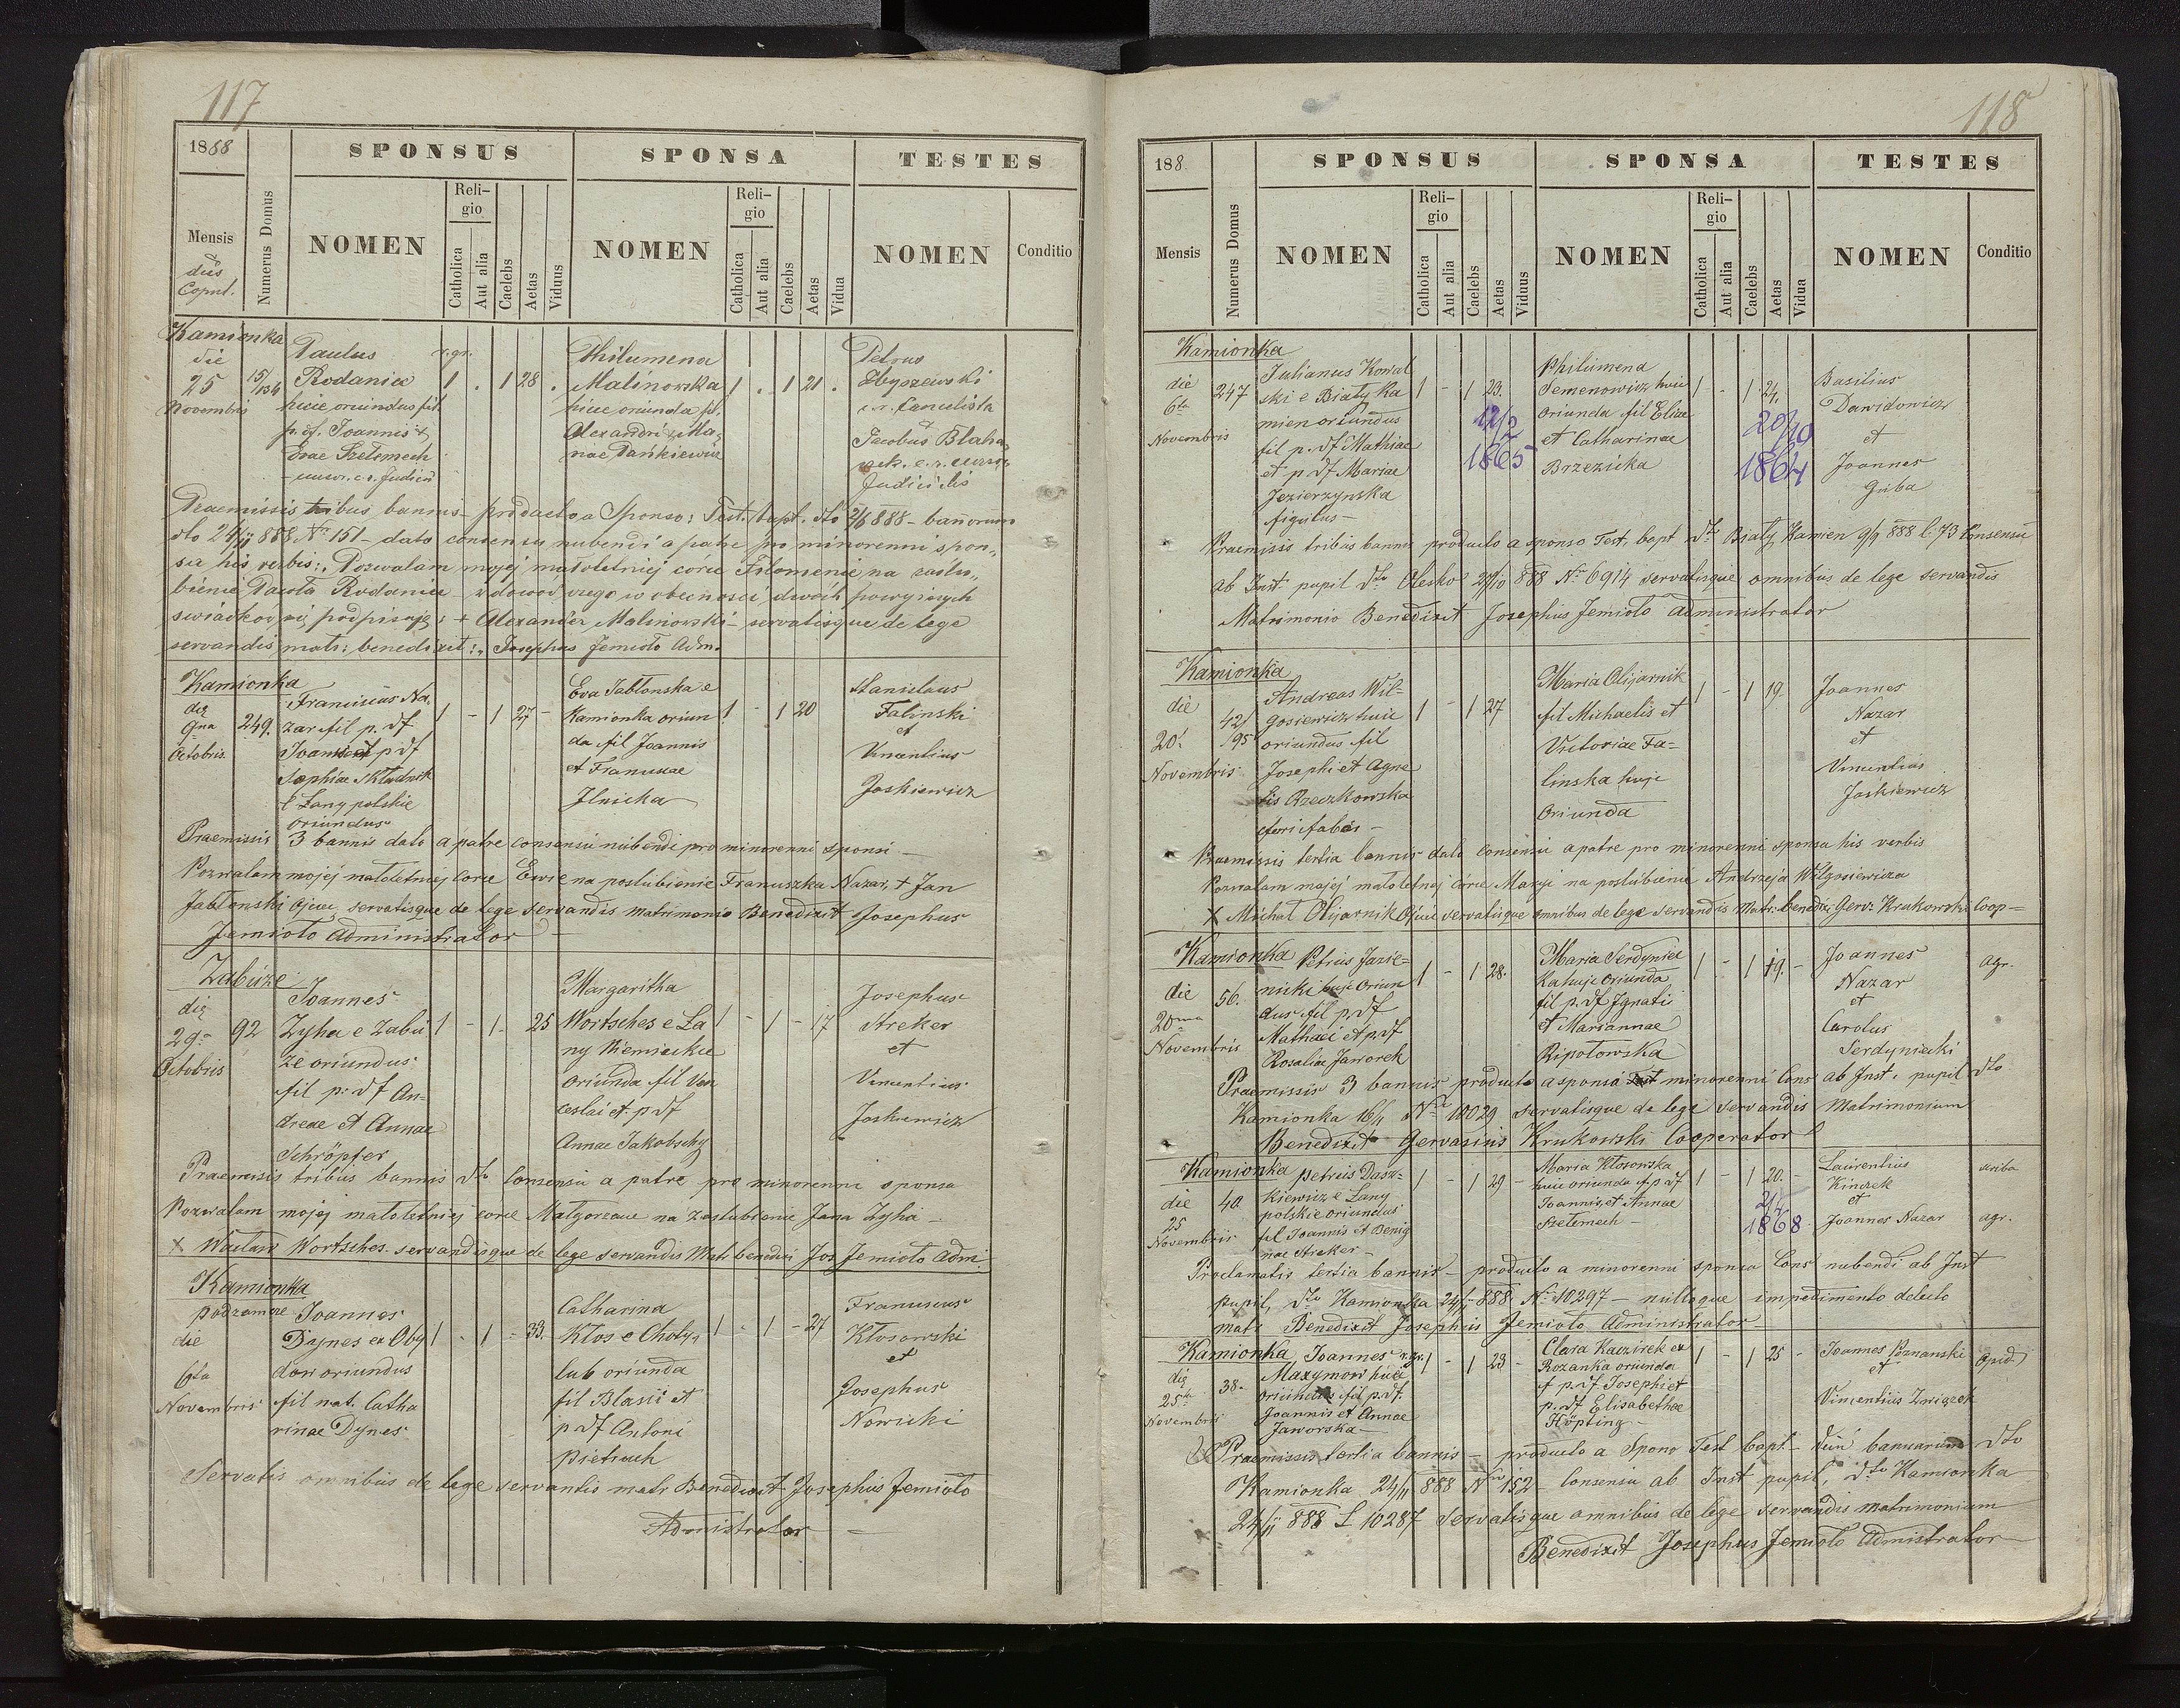 117
1888
SPONSUS
SPONSA
TESTES
Mensis
dies
Copul.
Numerus Domus
NOMEN
Reli-
gio
Catholica
Aut alia
Caelebs
Aetas
Viduus
NOMEN
Reli-
gio
Catholica
Aut alia
Caelebs
Aetas
Vidua
NOMEN
Conditio
Kamionka
die
25
Novembris
Paulus r.gr.
Rodanicz 1 . 1 28 .
hicie oriundus fil.
p. df. Joannis &
Evae Szelemech
Philumena
Malinowska 1 . 1 21 .
hicie oriunda fil.
Alexandri & Ma-
riae Pankiewicz
Petrus
Zbyszewski
c.r. Cancelista
&
Jacobus Blaha
Praemissis tribus bannis producto a Sponso: Test. bapt. dto 2/6 888 - banorum
dto 24/11 888 Nr 151 - dato consensu nubendi a patre pro minorenni spon-
sa his verbis: Pozwalam mojej małoletniej córce Filomenie na zaślu-
bienie Pawła Rodanicz w dowód czego w obecności dwóch powyższych
świadków się podpisuję: + Alexander Malinowski - servatisque de lege
servandis matr: benedixit: Josephus Jemioło Adm.
Kamionka
die
9na
Octobris
249.
Franciscus Na-
zar fil p. df. 1 - 1 27 -
Joannis et p df
Sophiae Składnik
e Łany polskie
oriundus
Eva Jabłonska e
Kamionka oriun 1 - 1 20
da fil Joannis
et Franciscae
Ilnicka
Stanislaus
Falinski
et
Vincentius
Joskiewicz
Praemissis 3 bannis dato a patre consensu nubendi pro minorenni sponsi -
Pozwalam mojej małoletniej Corce Ewie na poslubienie Franciszka Nazar, + Jan
Jabłonski Ojciec servatisque de lege servandis matrimonio Benedixit Josephus
Jemioło Administrator
Zabuże
die
29a
Octobris
92
Joannes
Zyha e Zabu 1 - 1 - 25
że oriundus
fil p. df An-
dreae et Annae
Schröpfer
Margaritha
Wortsches e Ła 1 - 1 - 17
ny Niemieckie
oriunda fil Ven
ceslai et p df
Annae Jakobschy
Josephus
Streker
et
Vincentius
Joskiewicz
Praemissis tribus bannis dto Consensu a patre pro minorenni sponsa
Pozwalam mojej małoletniej corce Małgorzacie na Zaślubienie Jana Zyha -
X Wacław Wortsches. servandisque de lege servandis Matr benedixi Jos Jemioło Adm.
Kamionka
podzamcze
die
6ta
Novembris
Joannes
Dynes ex Oby 1 - 1 - 33.
dow oriundus
fil nat. Catha
rinae Dynes
Catharina
Kłos e Chołyn 1 - 1 - 27
lub oriunda
fil Blasii et
p df Antoni
Pietruch
Franciscus
Kłosowski
et
Josephus
Nowicki
Servatis omnibus de lege servantis matr Benedixit Josephus Jemioło
Admistrator -
118
188
SPONSUS
SPONSA
TESTES
Mensis
Numerus Domus
NOMEN
Reli-
gio
Catholica
Aut alia
Caelebs
Aetas
Viduus
NOMEN
Reli-
gio
Catholica
Aut alia
Caelebs
Aetas
Vidua
NOMEN
Conditio
Kamionka
die
6ta
Novembris
247
Julianus Kowal
ski e Biały Ka 1 - 1 23.
mien oriundus
fil p. df Mathiae
et p. df Mariae
Jezierzynska
figulus -
12/2
1865
Philumena
Semenowicz huic 1 - 1 24.
oriunda fil Eliae
et Catharinae
Brzezicka
20/10
1864
Basilius
Dawidowicz
et
Joannes
Guba
Praemissis tribus bannis producto a sponso Test. bapt dto Biały Kamien 9/9 888 l: 73 Consensu
ab Inst pupil dto Olesko 29/10 888 Nr 6914 servatisque omnibus de lege servandis
Matrimonio Benedixit Josephus Jemioło Administrator
Kamionka
die
20.
Novembris
42/
195
Andreas Wil-
gosiewicz huic 1 - 1 27
oriundus fil
Josephi et Agne
tis Rzeczkowska
Maria Olijarnik
fil Michaelis et 1 - 1 19.
Victoriae Fa-
linska huje
Oriunda
Joannes
Nazar
et
Vincentius
Joskiewicz
Praemissis tertia bannis dato consensu a patre pro minorenni sponsa his verbis
Pozwalam mojej małoletnej córce Maryi na poslubienie Andrzeja Wilgosiewicza
X Michał Olijarnik Ojciec servatisque omnibus de lege servandis Matr. benedixi Gerv. Krukowski Coop-
Kamionka
die
20ma
Novembris
56.
Petrus Jasie-
nicki huje oriun 1 - 1 28.
dus fil p. df
Mathaei et p. df
Rosaliae Jaworek
Maria Serdynicz
ka huje oriunda 1 - 1 19. -
fil p. df Ignati
et Mariannae
Ripołowska
Joannes agr.
Nazar
et
Carolus
Serdyniecki
Praemissis 3 bannis producto a sponsa minorenni Cons ab Inst. pupil dto
Kamionka 16/11 Nr 10029 servatisque de lege servandis Matrimonium
Benedixit Gervasius Krukowski Cooperator
Kamionka
die
25
Novembris
40
Petrus Dasz-
kiewicz e Łany 1 - 1 29 -
polskie oriundus
fil Joannis et Benig
nae Streker -
Maria Kłosowska
huic oriunda f p df 1 - 1 20. -
Joannis et Annae
Szelemech -
1868
Laurentius scriba
Kinczek
et
Joannes Nazar agr.
Proclamatis tertia bannis - producto a minorenni sponsa Cons nubendi ab Inst
pupil, dto Kamionka 24/11 888 Nr 10297 - nulloque impedimento detecto
matr Benedixit Josephus Jemioło Administrator
Kamionka
die
25ta
Novembris
38.
Joannes r.gr. 1 - 1 23 -
Maxymow huic
oriundus fil p. df
Joannis et Annae
Jaworska -
Clara Kaczirek ex
Rozanka oriunda 1 - 1 25 -
f p. df Josephi et
p. df Elisabethae
Höpting -
Joannes Poznanski opid
et
Vincentius Zwiqzek
Praemissis tertia bannis - producto a Spono Test bapt - bannarum dto
Kamionka 24/11 888 Nro 152 Consensu ab Inst pupil, dto Kamionka
24/11 888 L 10287 Servatisque omnibus de lege servandis matrimonium
Benedixit Josephus Jemioło Admistrator